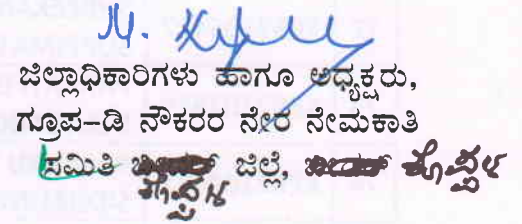 ಜಿಲ್ಲಾಧಿಕಾರಿಗಳು ಹಾಗೂ ಅಧ್ಯಕ್ಷರು,
ಗ್ರೂಪ-ಡಿ ನೌಕರರ ನೇರ ನೇಮಕಾತಿ
ಸಮಿತಿ ಕೊಪ್ಪಳ ಜಿಲ್ಲೆ, ಕೊಪ್ಪಳ